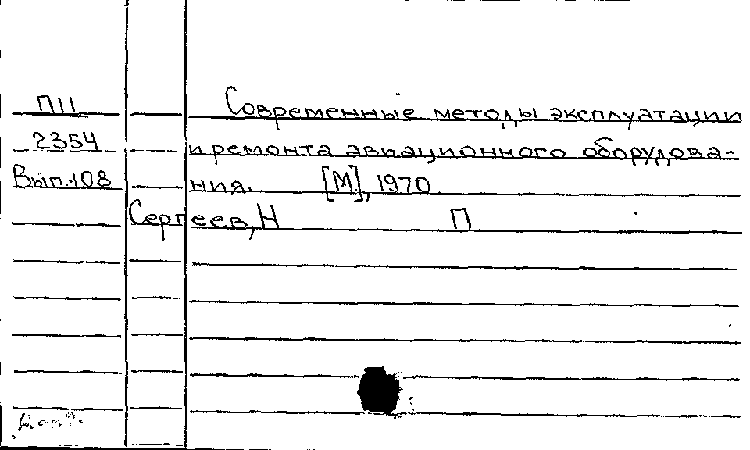 П11 Современные методы эксплуатации
2354 и ремонта авиационного оборудова-
Вып.108 ния. [М], 1970.
Сергеев, Н П